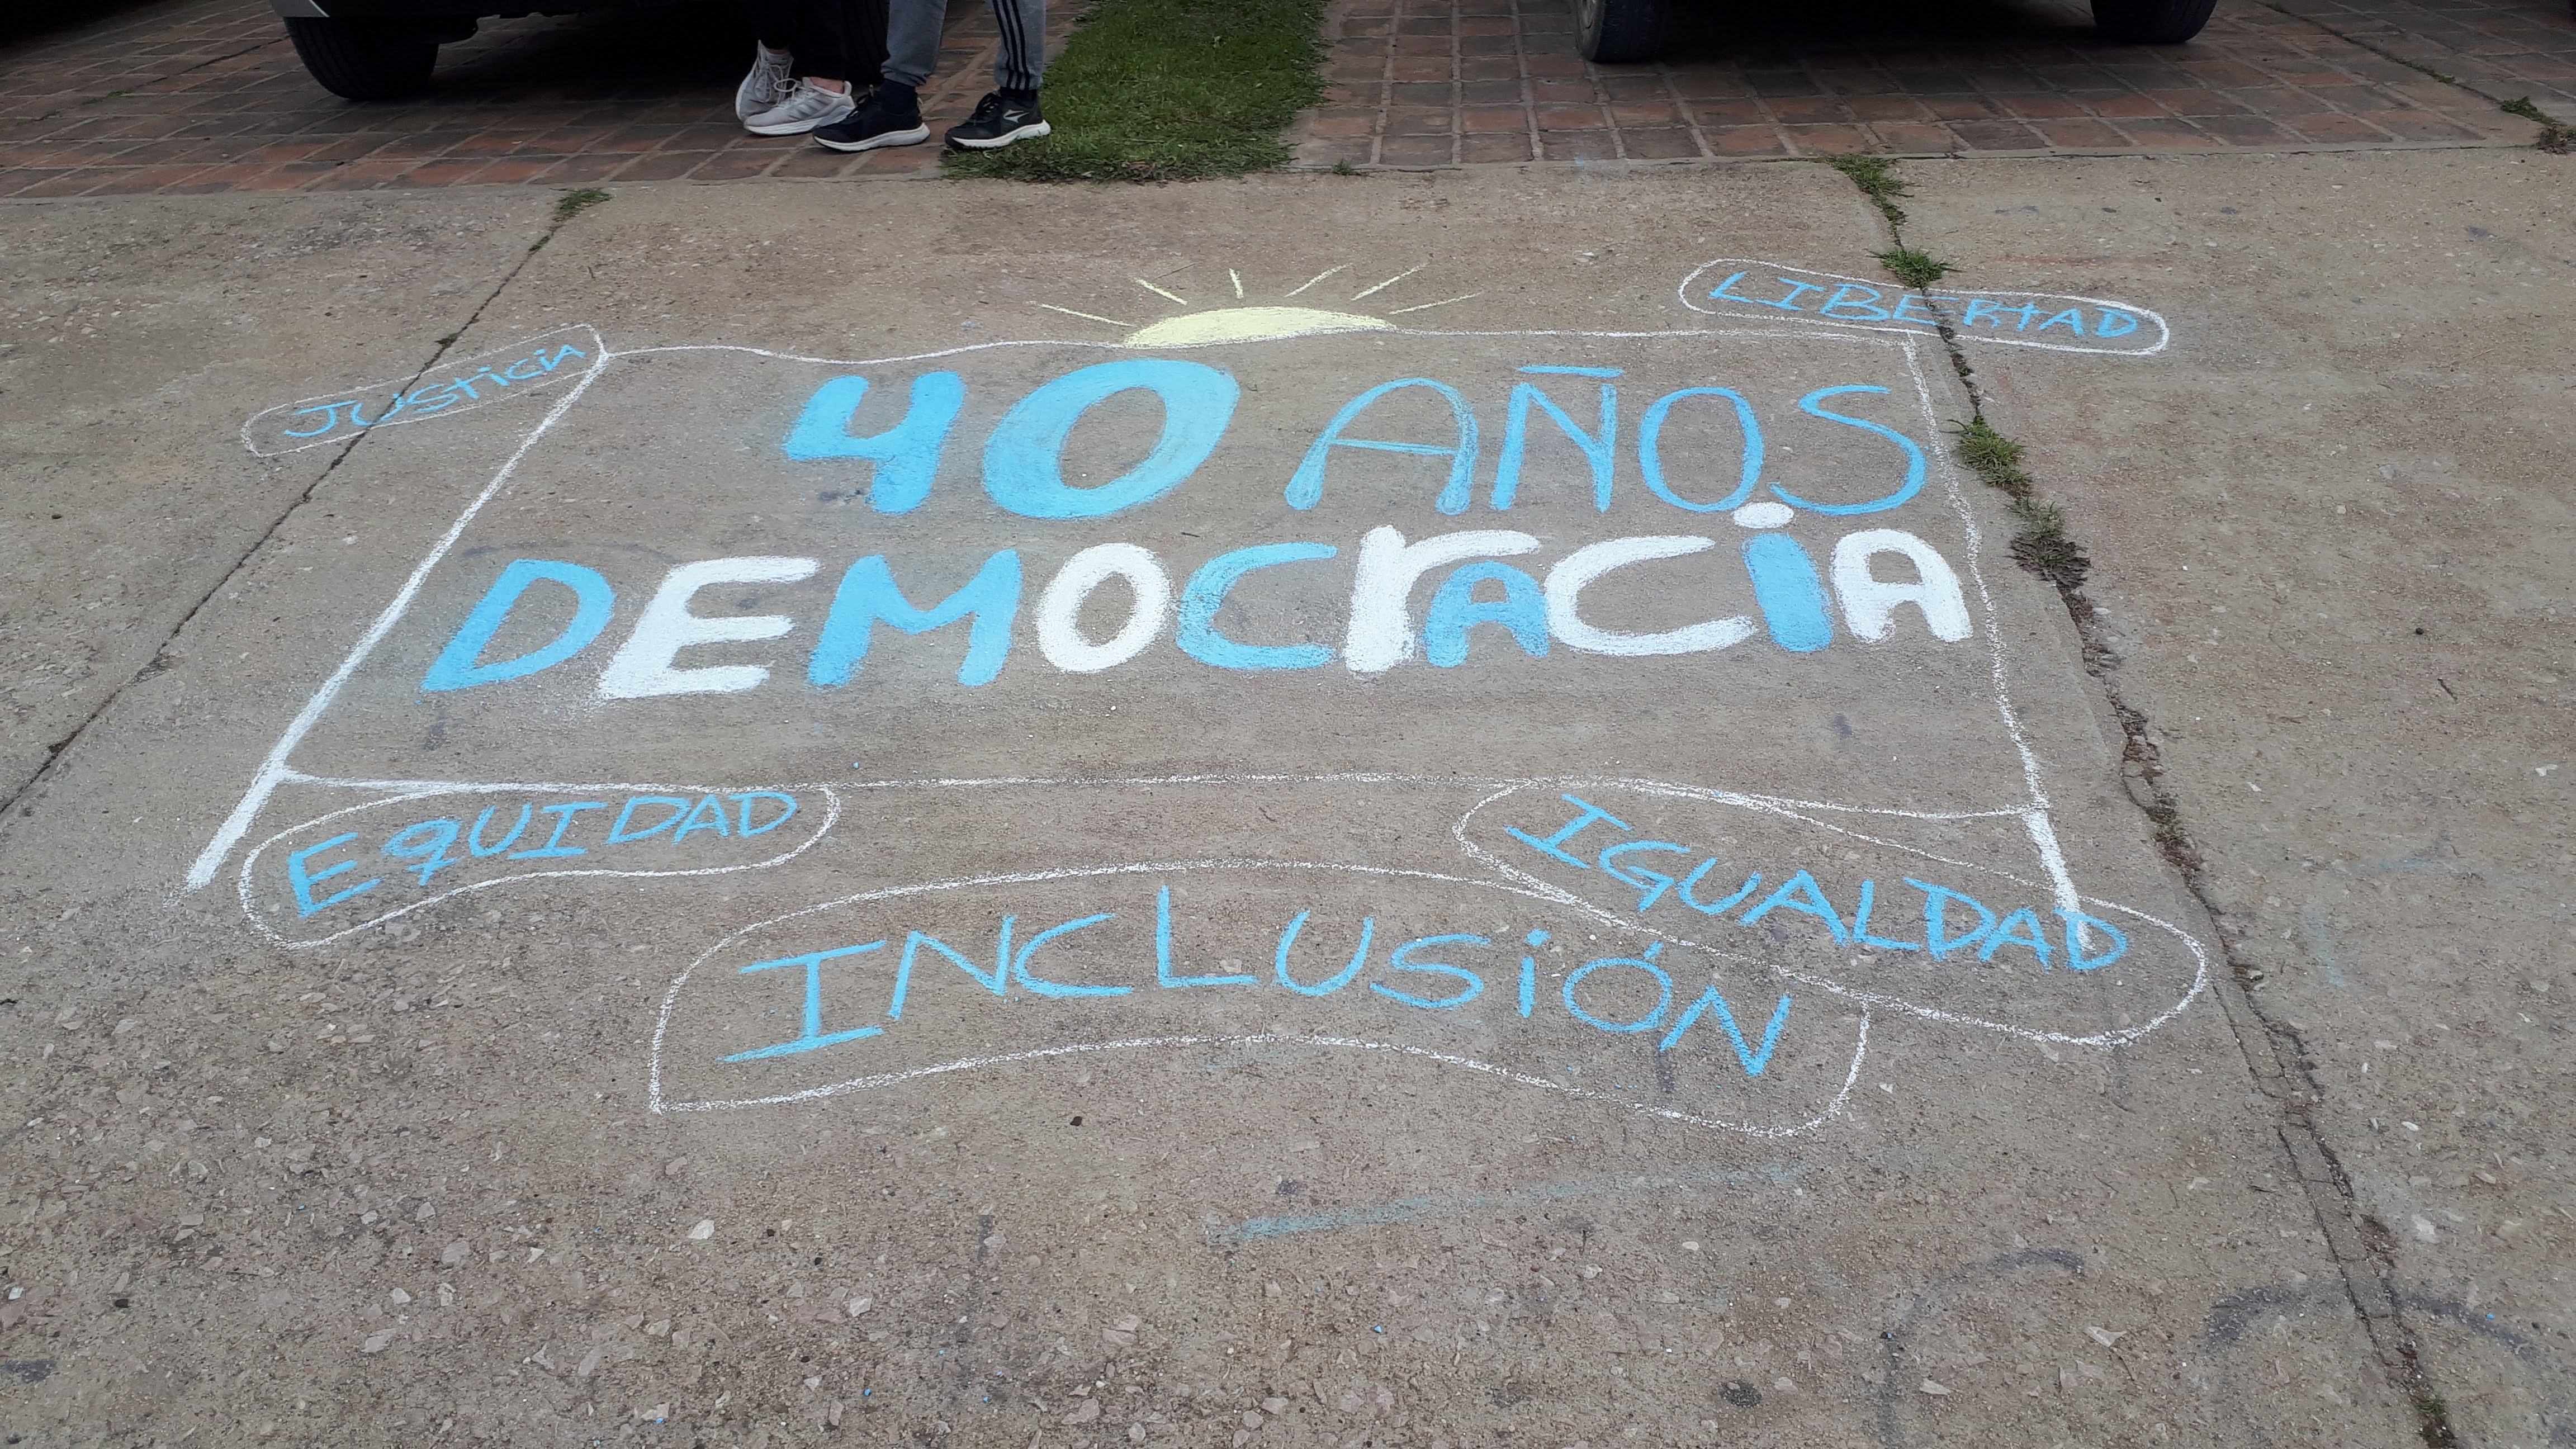 JUSTICIA
LIBERTAD
40 AÑOS
DEMOCRACIA
EQUIDAD
IGUALDAD
INCLUSIÓN